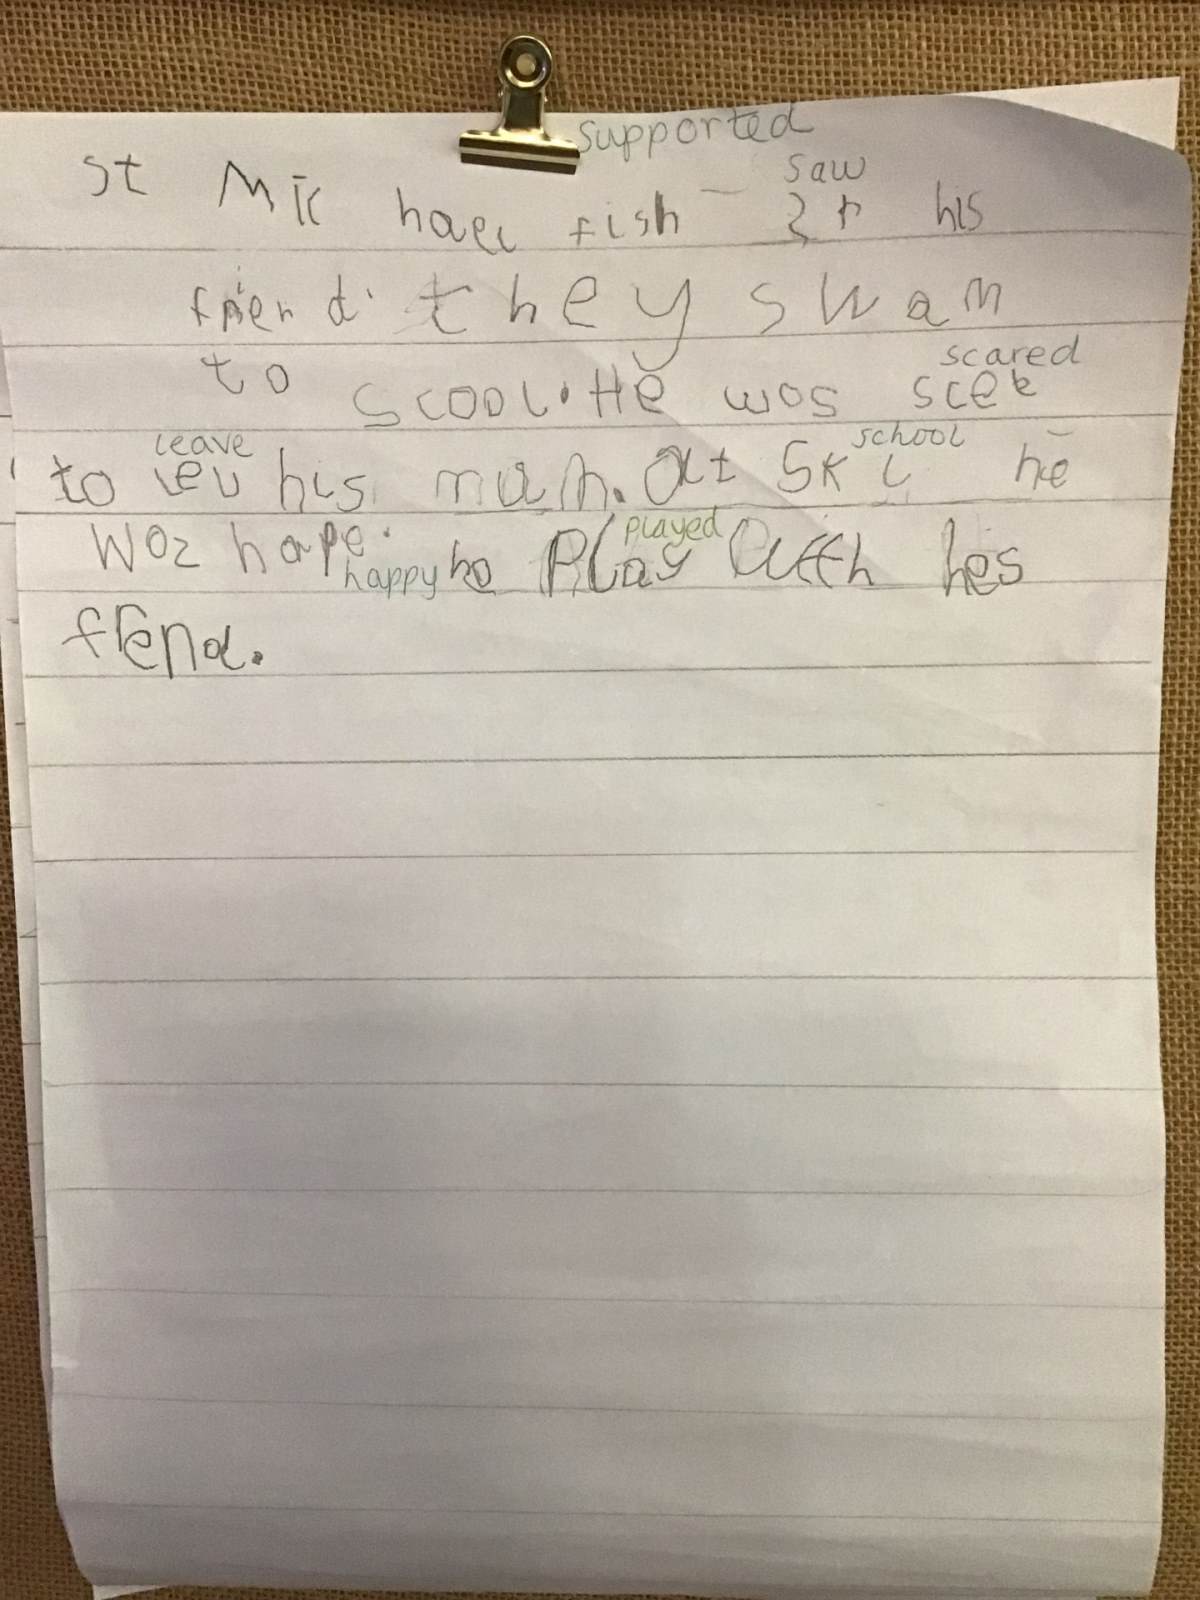 supported
saw
st Mic haeL fish his
friend. they swam
scared
to scool. He wos scee
leave school
to lev his mum. at Sk L he
played
woz hape. he Play with his
happy
frend.